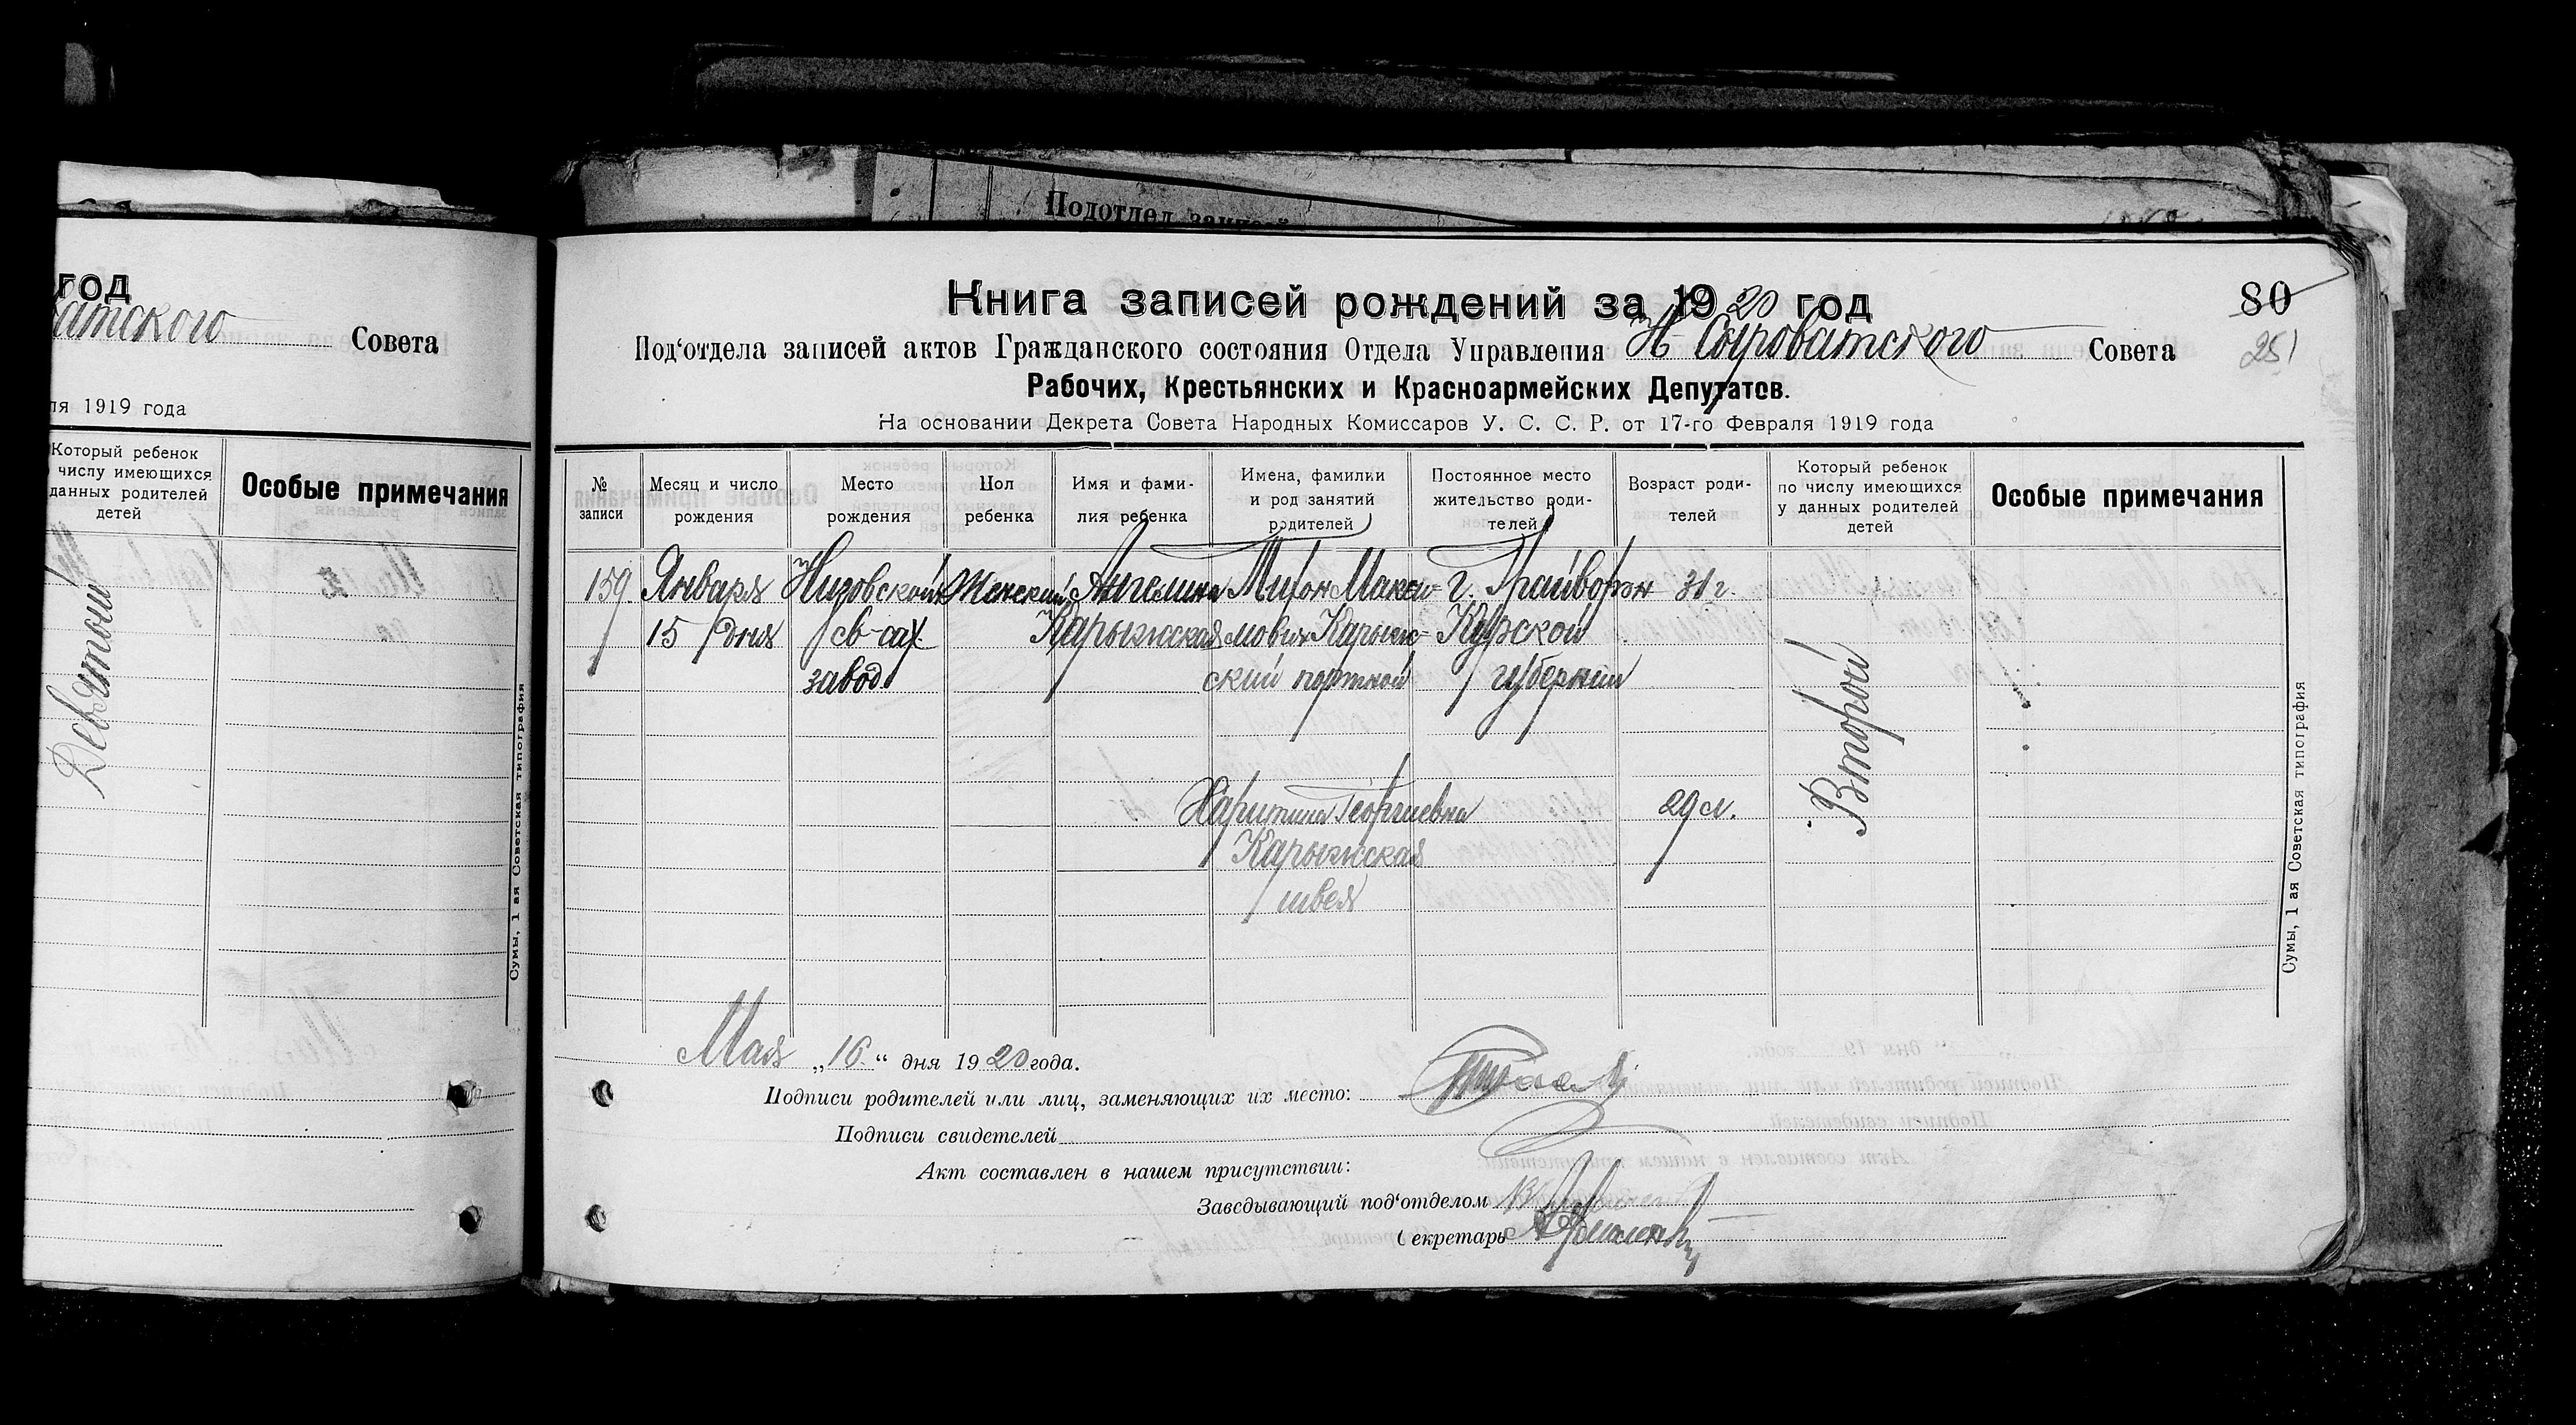 Подотдел записей
год
ватского Совета
ля 1919 года
Который ребенок
числу имеющихся
данных родителей
детей
Особые примечания
Девятый
Сумы, 1 ая Советская типография
Книга записей рождений за 1920 год
80
Под‘отдела записей актов Гражданского состояния Отдела Управления Н Сыроватского Совета
251
Рабочих, Крестьянских и Красноармейских Депутатов.
На основании Декрета Совета Народных Комиссаров У. С. С. Р. от 17-го Февраля 1919 года
№ записи
Месяц и число рождения
Место рождения
Пол ребенка
Имя и фами-
лия ребенка
Имена, фамилии
и род занятий
родителей
Постоянное место
жительство роди-
телей
Возраст роди-
телей
Который ребенок
по числу имеющихся
у данных родителей
детей
Особые примечания
159 Января Низовской Женский Ангелина Мирон Макси- г. Грайворон 31 г.
15 дня св-сах Карыжская мович Карыж- Курской
завод ский портной губернии
Второй
Харитина Георгиевна 29 л.
Карыжская
швея
Сумы, 1 ая Советская типография
Мая „16“ дня 1920 года.
Подписи родителей или лиц, заменяющих их место:
Подписи свидетелей
Акт составлен в нашем присутствии:
Заведывающий под‘отделом
Секретарь